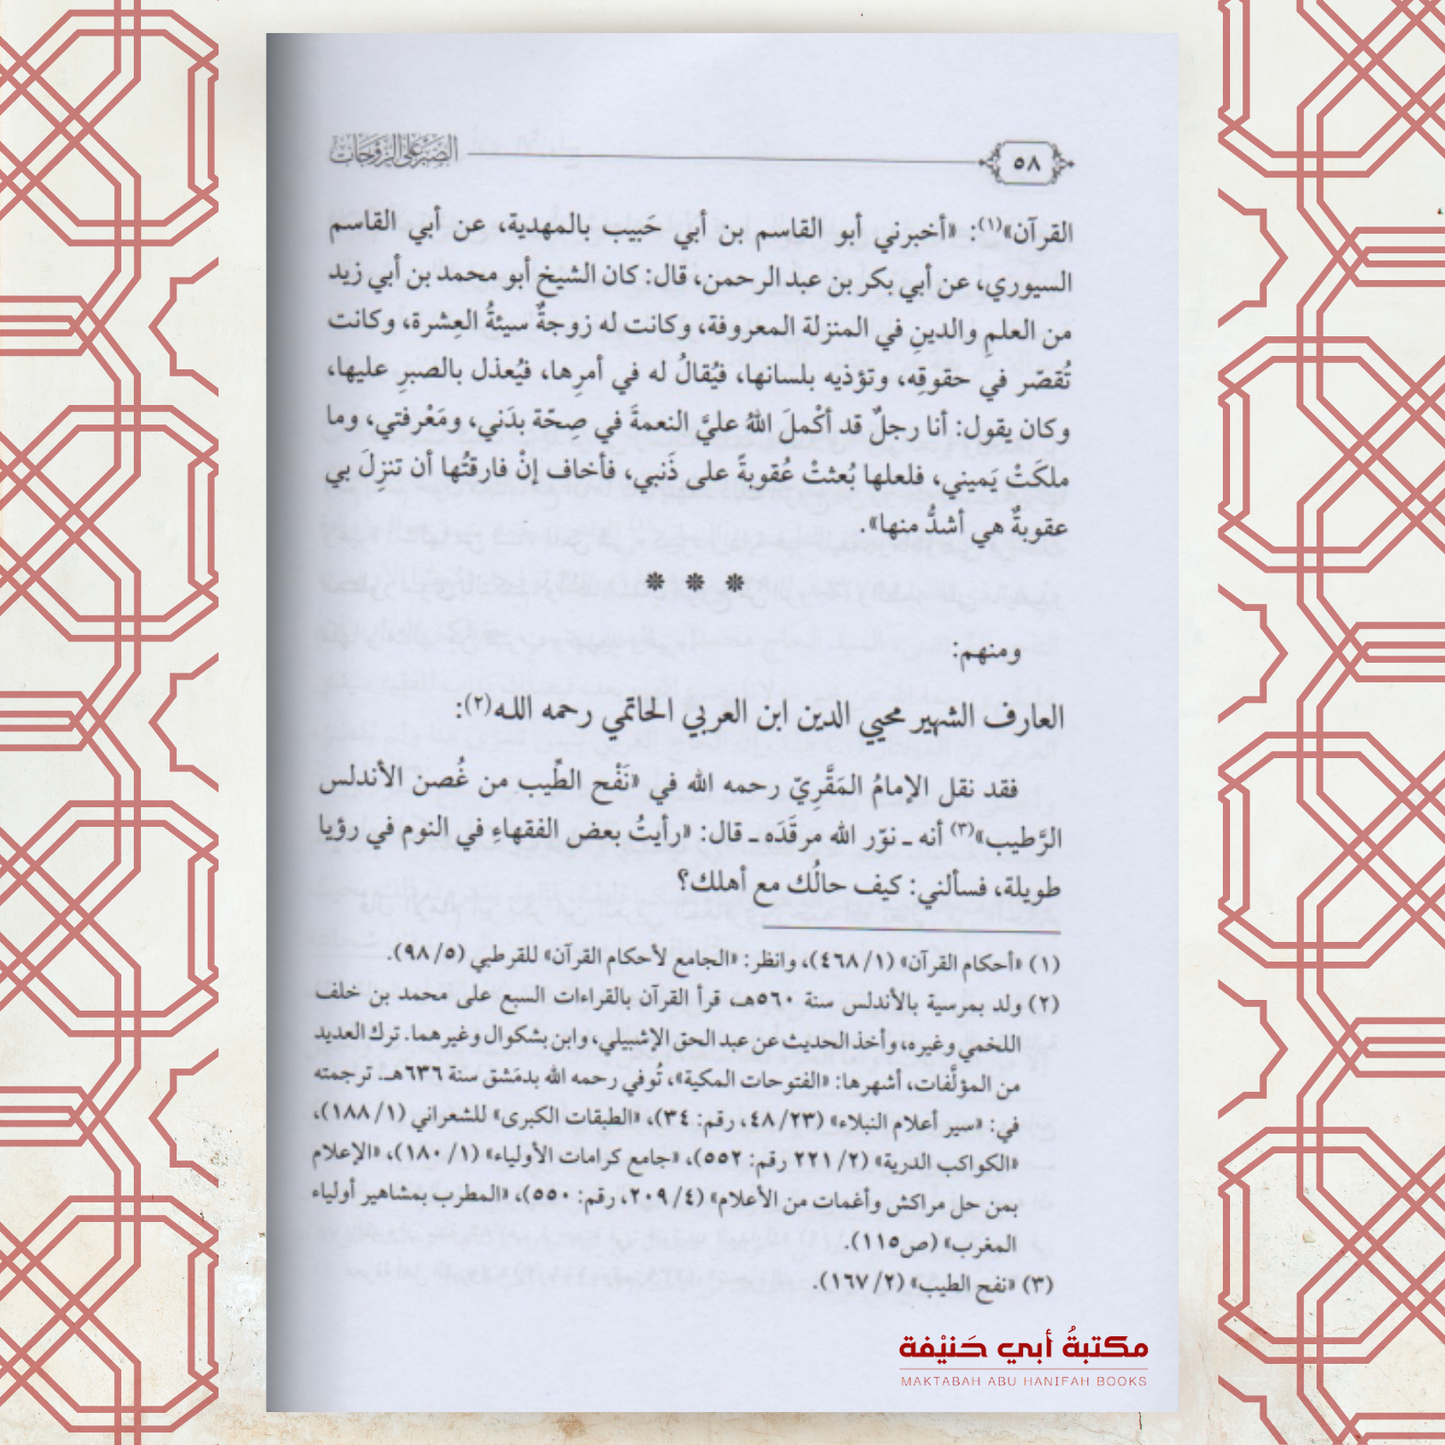 ٥٨ الصبر على الزوجات
القرآن»(١): «أخبرني أبو القاسم بن أبي حَبيب بالمهدية، عن أبي القاسم
السيوري، عن أبي بكر بن عبد الرحمن، قال: كان الشيخ أبو محمد بن أبي زيد
من العلمِ والدينِ في المنزلة المعروفة، وكانت له زوجةٌ سيئةُ العِشرة، وكانت
تُقصّر في حقوقِه، وتؤذيه بلسانها، فيُقالُ له في أمرِها، فيُعذل بالصبرِ عليها،
وكان يقول: أنا رجلٌ قد أكْملَ اللهُ عليَّ النعمةَ في صِحّة بدَني، ومَعْرفتي، وما
ملكَتْ يَميني، فلعلها بُعثتْ عُقوبةً على ذَنبي، فأخاف إنْ فارقتُها أن تنزِلَ بي
عقوبةٌ هي أشدُّ منها».
* * *
ومنهم:
العارف الشهير محيي الدين ابن العربي الحاتمي رحمه الله(٢):
فقد نقل الإمامُ المَقَّرِيّ رحمه الله في «نَفْح الطِّيب من غُصن الأندلس
الرَّطيب»(٣) أنه ـ نوّر الله مرقَدَه ـ قال: «رأيتُ بعض الفقهاءِ في النوم في رؤيا
طويلة، فسألني: كيف حالُك مع أهلك؟
(١) «أحكام القرآن» (١/ ٤٦٨)، وانظر: «الجامع لأحكام القرآن» للقرطبي (٥/ ٩٨).
(٢) ولد بمرسية بالأندلس سنة ٥٦٠هـ، قرأ القرآن بالقراءات السبع على محمد بن خلف
اللخمي وغيره، وأخذ الحديث عن عبد الحق الإشبيلي، وابن بشكوال وغيرهما. ترك العديد
من المؤلَّفات، أشهرها: «الفتوحات المكية»، تُوفي رحمه الله بدمَشق سنة ٦٣٦هـ. ترجمته
في: «سير أعلام النبلاء» (٢٣/ ٤٨، رقم: ٣٤)، «الطبقات الكبرى» للشعراني (١/ ١٨٨)،
«الكواكب الدرية» (٢/ ٢٢١ رقم: ٥٥٢)، «جامع كرامات الأولياء» (١/ ١٨٠)، «الإعلام
بمن حل مراكش وأغمات من الأعلام» (٤/ ٢٠٩، رقم: ٥٥٠)، «المطرب بمشاهير أولياء
المغرب» (ص١١٥).
(٣) «نفح الطيب» (٢/ ١٦٧).
مكتبةُ أبي حَنيْفة
MAKTABAH ABU HANIFAH BOOKS